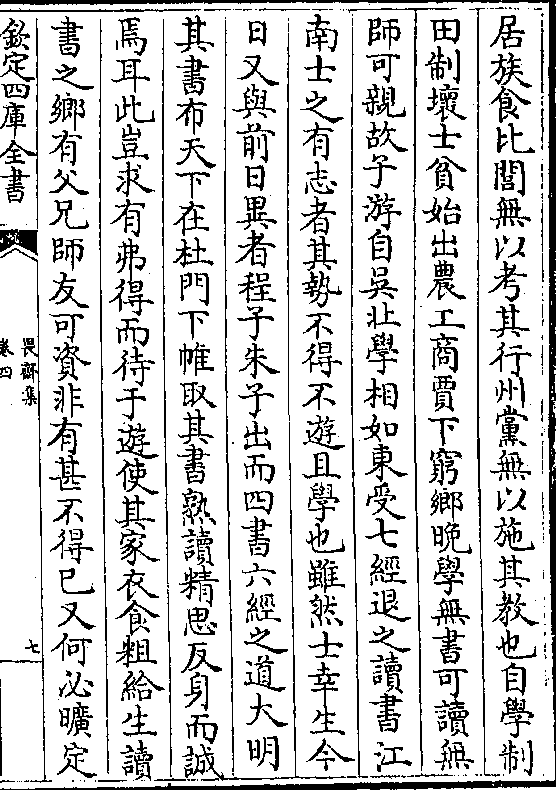 居族食比閭無以考其行州黨無以施其教也自學制
田制壞士貧始出農工商賈下窮鄉晚學無書可讀無
師可親故子游自吳北學相如東受七經退之讀書江
南士之有志者其勢不得不遊且學也雖然士幸生今
日又與前日異者程子朱子出而四書六經之道大明
其書布天下在杜門下帷取其書熟讀精思反身而誠
焉耳此豈求有弗得而待于遊使其家衣食粗給生讀
書之鄉有父兄師友可資非有甚不得已又何必曠定
欽定四庫全書
畏齋集
卷四
七